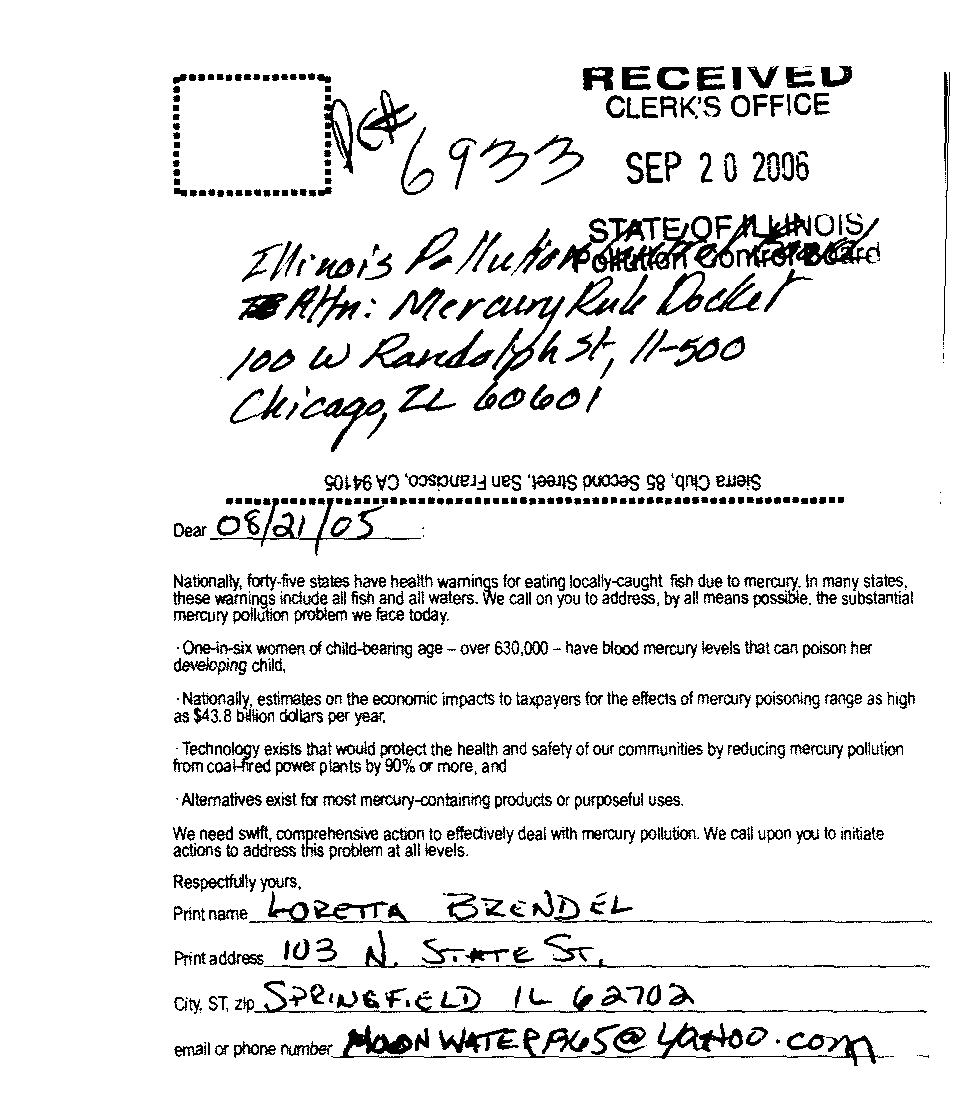 RECEIVED
CLERK'S OFFICE
PC# 6933
SEP 20 2006
STATE OF ILLINOIS
Pollution Control Board
Illinois Pollution Control Board
Attn: Mercury Rule Docket
100 W Randolph St, 11-500
Chicago, IL 60601
Sierra Club, 85 Second Street, San Francisco, CA 94105
Dear 08/21/05 :
Nationally, forty-five states have health warnings for eating locally-caught fish due to mercury. In many states,
these warnings include all fish and all waters. We call on you to address, by all means possible, the substantial
mercury pollution problem we face today.
· One-in-six women of child-bearing age – over 630,000 – have blood mercury levels that can poison her
developing child,
· Nationally, estimates on the economic impacts to taxpayers for the effects of mercury poisoning range as high
as $43.8 billion dollars per year,
· Technology exists that would protect the health and safety of our communities by reducing mercury pollution
from coal-fired power plants by 90% or more, and
· Alternatives exist for most mercury-containing products or purposeful uses.
We need swift, comprehensive action to effectively deal with mercury pollution. We call upon you to initiate
actions to address this problem at all levels.
Respectfully yours,
Print name LORETTA BRENDEL
Print address 103 N. STATE ST.
City, ST, zip SPRINGFIELD IL 62702
email or phone number